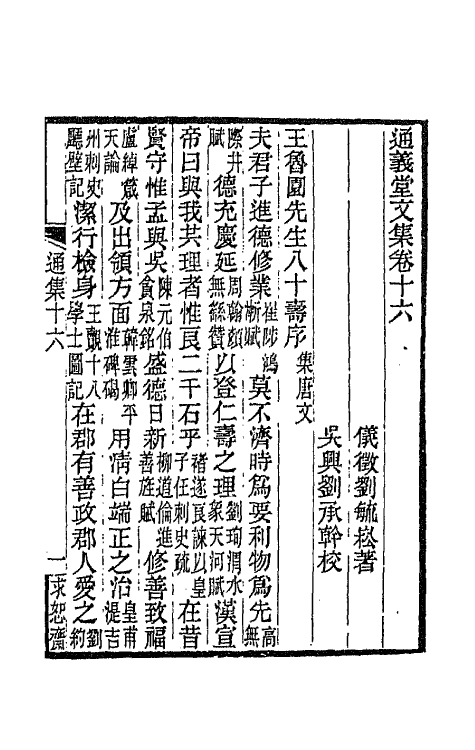 通義堂文集卷十六
儀徵劉毓崧著
吳興劉承幹校
王魯園先生八十壽序集唐文
夫君子進德修業崔陟鴻漸賦莫不濟時爲要利物爲先高無
際井賦德充慶延周翰顏無繇贊以登仁壽之理劉珣渭水象天河賦漢宣
帝曰與我共理者惟良二千石乎褚遂良諫以皇子任刺史疏在昔
賢守惟孟與吳陳元伯貪泉銘盛德日新柳道倫進善旌賦修善致福
盧綽箴天論及出領方面韓雲卿平淮碑碣用淸白端正之治皇甫湜吉
州刺史廳壁記潔行檢身王覿十八學士圖記在郡有善政郡人愛之劉約
通集十六
一
求恕齋